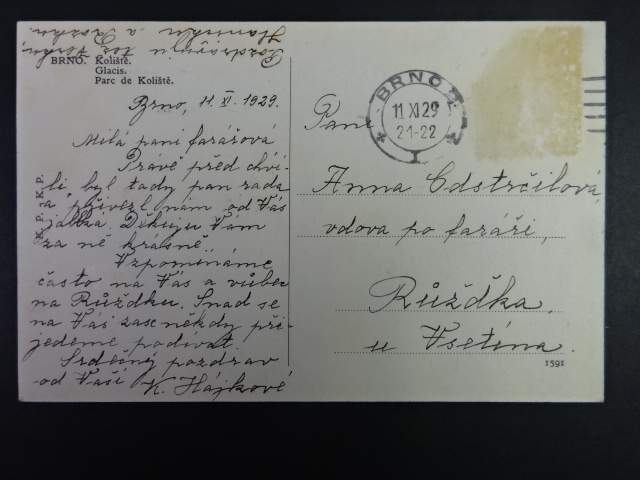 Pozdravuji též Verku,
Haninku a Boženu.
BRNO. Koliště.
Glacis.
Parc de Koliště.
Brno, 11. XI. 1929.
Milá paní farářová
Právě před chví-
li, byl tady pan rada
a přivezl nám od Vás
jablka. Děkuju Vám
za ně krásně.
Vzpomínáme
často na Vás a vůbec
na Růždku. Snad se
na Vás zase někdy při-
jedeme podívat.
Srdečný pozdrav
od Vaší K. Hájkové
K. P. K. P.
BRNO 2
11 XI 29
21-22
I
Paní
Anna Odstrčilová,
vdova po faráři,
Růžďka.
u Vsetína.
1591